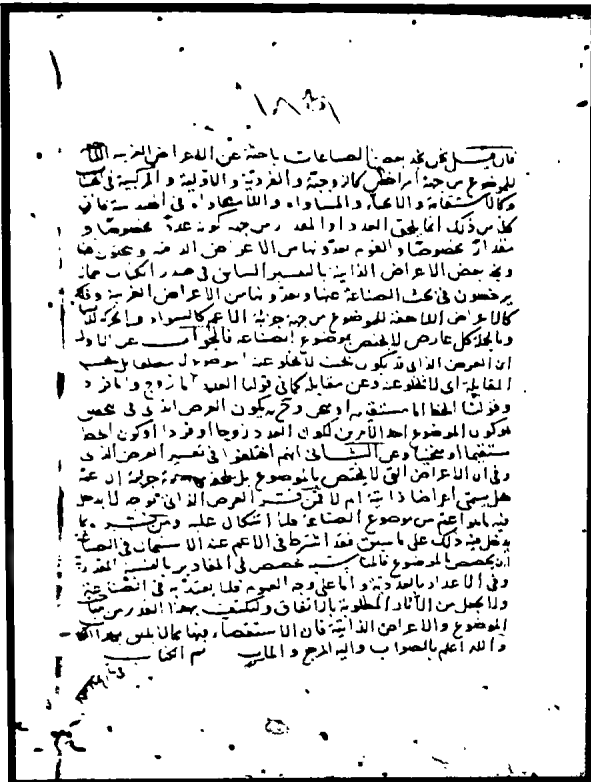 فان قيل نحن نجد بعض الصناعات باحثة عن الاعراض الغريبة
للموضوع من جهة اعراض كالزوجية والفردية والاولية والمركبية فى
وكالاستقامة والانحناء والمساواة واللامساواة فى الهندسة فان
كل من ذلك انما يلحق العدد او المقدار من جهة كون عددا مخصوصا و
مقدارا مخصوصا والقوم يعدونها من الاعراض الذاتية ويبحثون عنها
وبعض الاعراض الذاتية بالتفسير السابق فى صدر الكتاب مما
يرفضون فى بحث الصناعة عنها ويعدونها من الاعراض الغريبة
كالاعراض اللاحقة للموضوع من جهة جزئه الاعم كالسواد والحركة
وبالجملة كل عارض لا يختص بموضوع الصناعة فالجواب عن الاول
ان العرض الذاتى قد يكون بحيث لا يخلو عنه الموضوع لا مطلقا بل بحسب
المقابلة اى لا يخلو عنه وعن مقابله كما فى قولنا العدد اما زوج واما فرد
وقولنا الخط اما مستقيم او منحن و يكون العرض الذاتى فى
هو كون الموضوع احد الامرين ككون العدد زوجا او فردا او كون الخط
مستقيما او منحنيا وعن الثانى انهم اختلفوا فى تفسير العرض الذاتى
وفى ان الاعراض التى لا يختص بالموضوع بل جزئه الاعم
هل يسمى اعراضا ذاتية ام لا فمن فسر العرض الذاتى لا يدخل
فيه ما هو اعم من موضوع الصناعة فلا اشكال عليه ومن فسره بما
يدخل فيه ذلك على ما سبق فقد اشترط فى الاعم عند الاستعمال فى
ان يخصص بالموضوع فالمناسبة يخصص فى المقادير بالنسبة المقدارية
وفى الاعداد بالعددية واما على وجه العموم فلا يعتد به فى
ولا يجعل من الآثار المطلوبة بالاتفاق وليكتف بهذا القدر من
الموضوع والاعراض الذاتية فان الاستقصاء فيها مما لا يليق بهذا
والله اعلم بالصواب واليه المرجع والمآب تم الكتاب